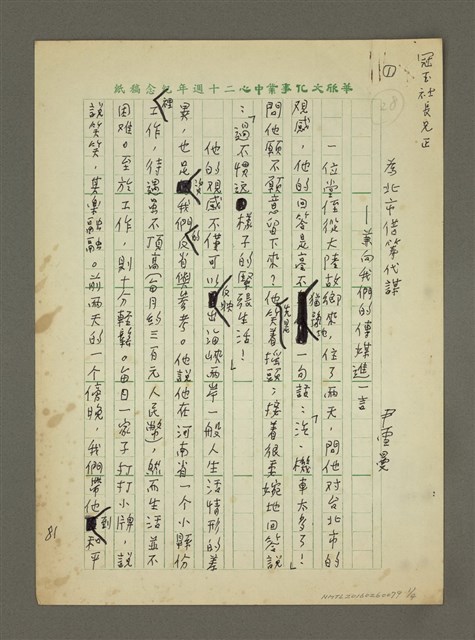 冠玉社長兄正
①
28
華欣文化事業中心二十週年紀念稿紙
為北市借箸代謀
——兼向我們的傳媒進一言
尹雪曼
一位堂侄從大陸故鄉來，住了兩天，問他對台北市的
觀感，他的回答是毫不猶豫地一句話：「汽、機車太多了！」
問他願不願意留下來？他先是笑着搖頭；接着很委婉地回答說
：「過不慣這樣子的緊張生活！」
他的觀感不僅可以反映出海峽兩岸一般人生活情形的差
異，也足供我們的反省與參考。他說他在河南省一個小縣份
裡工作，待遇雖不頂高（每月約三百元人民幣），然而生活並不
困難。至於工作，則十分輕鬆。每日一家子打打小牌，說
說笑笑，其樂融融。前兩天的一個傍晚，我們帶他到和平
81
NMTL20160260079 1/4